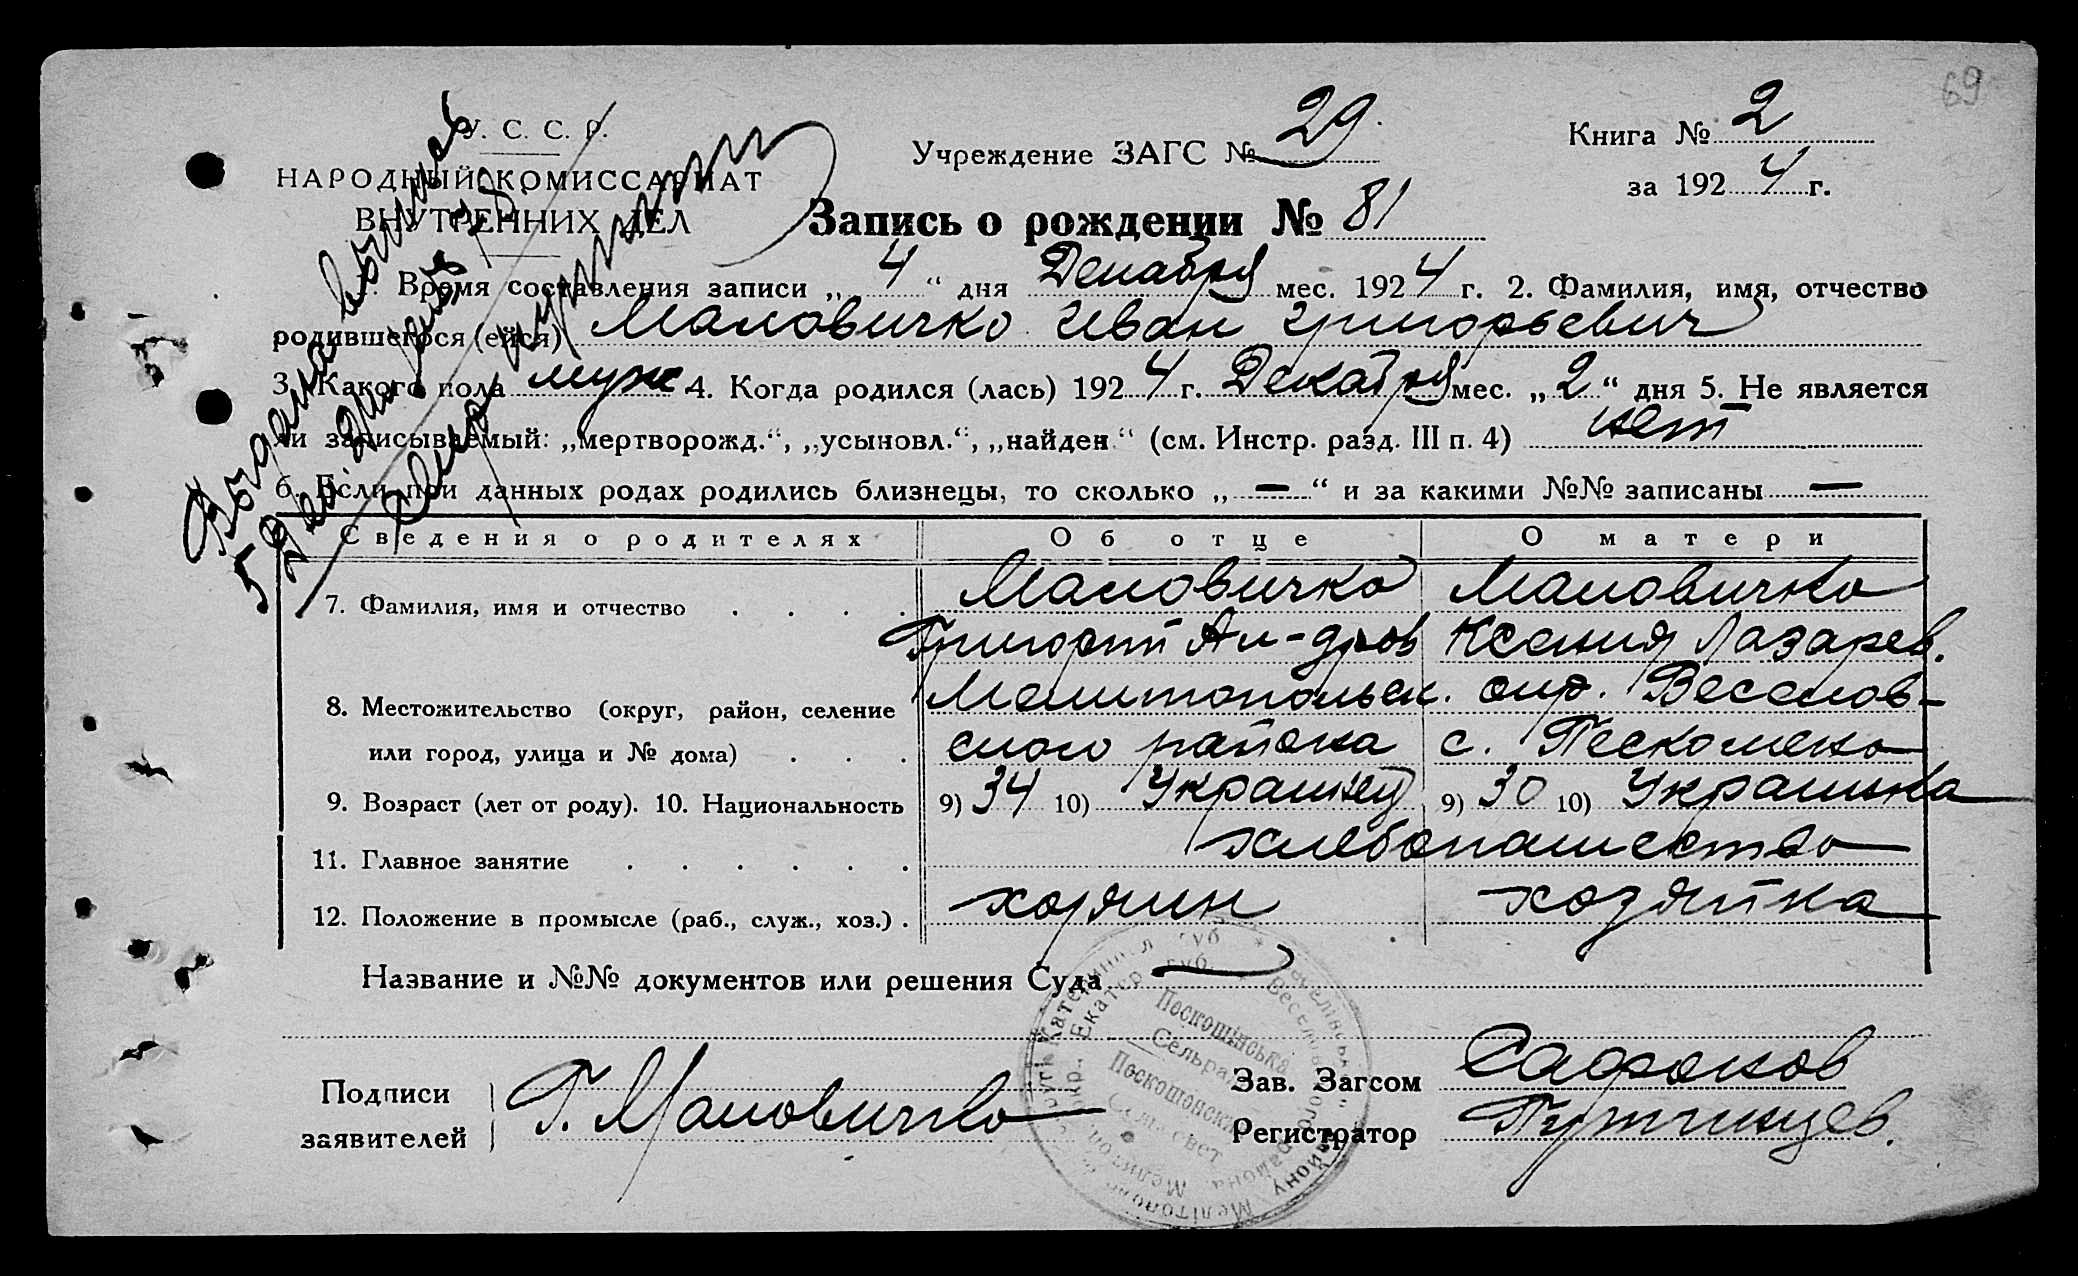 69
У. С. С. Р.
НАРОДНЫЙ КОМИССАРИАТ
ВНУТРЕННИХ ДЕЛ
Учреждение ЗАГС № 29.
Книга № 2
за 1924 г.
Запись о рождении № 81
1. Время составления записи „4“ дня Декабря мес. 1924 г. 2. Фамилия, имя, отчество
родившегося (ейся) Маловичко Иван Григорьевич
3. Какого пола муж 4. Когда родился (лась) 1924 г. Декабря мес. „2“ дня 5. Не является
ли записываемый: „мертворожд.“, „усыновл.“, „найден“ (см. Инстр. разд. III п. 4) нет
6. Если при данных родах родились близнецы, то сколько „—“ и за какими №№ записаны —
Выдана
5
Сведения о родителях Об отце О матери
7. Фамилия, имя и отчество Маловичко Маловичко
Григорий Ал-дров Ксения Лазарев.
8. Местожительство (округ, район, селение Мелитопольск. окр. Веселов-
или город, улица и № дома) ского района с.
9. Возраст (лет от роду). 10. Национальность 9) 34 10) Украинец 9) 30 10) Украинка
11. Главное занятие хлебопашество
12. Положение в промысле (раб., служ., хоз.) хозяин хозяйка
Название и №№ документов или решения Суда —
Подписи
заявителей Г. Маловичко
Зав. Загсом Сафонов
Регистратор
Сельрада